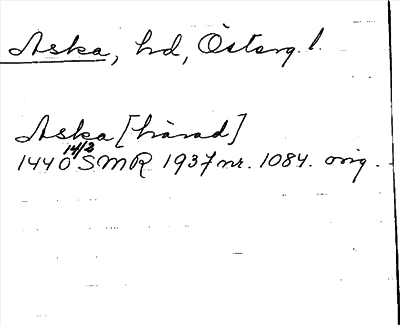 Aska, hd, Österg. l.
Aska [härad]
1440 14/2 SMR 1937 nr. 1084. orig.